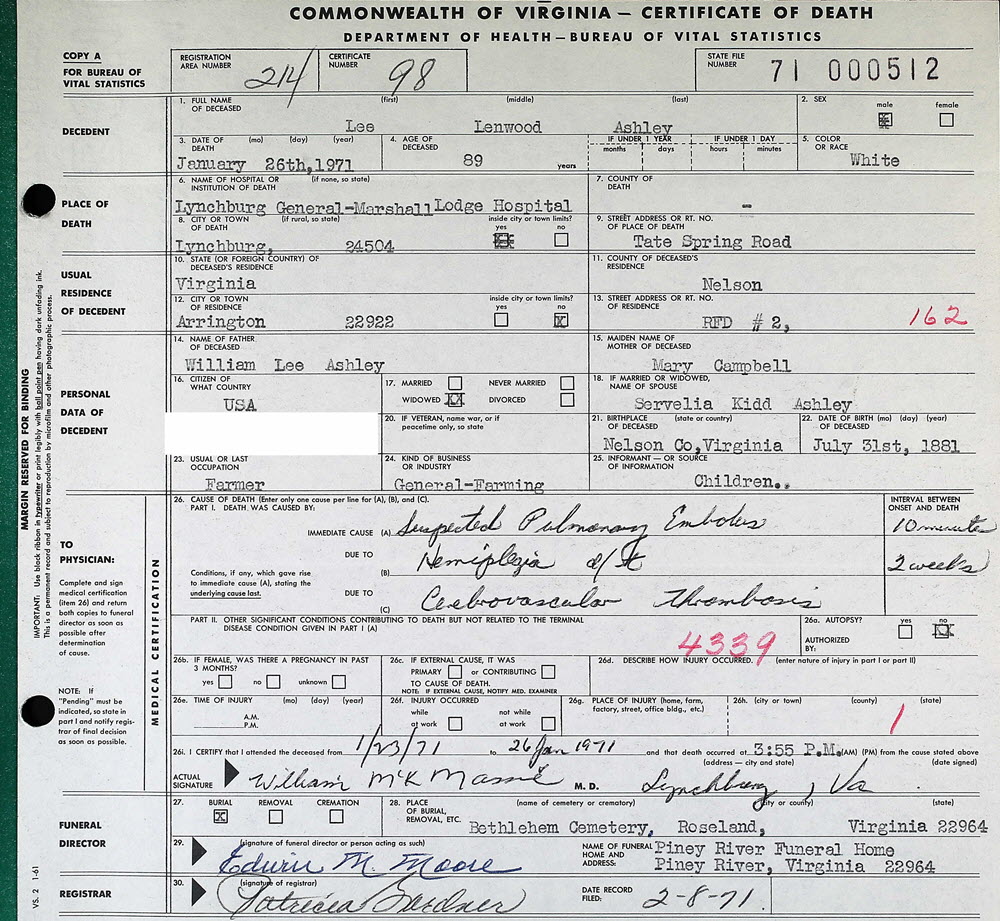 COMMONWEALTH OF VIRGINIA — CERTIFICATE OF DEATH
DEPARTMENT OF HEALTH — BUREAU OF VITAL STATISTICS
COPY A
FOR BUREAU OF
VITAL STATISTICS
REGISTRATION
AREA NUMBER
214
CERTIFICATE
NUMBER
98
STATE FILE
NUMBER
71 000512
DECEDENT
1. FULL NAME (first) (middle) (last)
OF DECEASED
Lee Lenwood Ashley
2. SEX
male female
3. DATE OF (mo) (day) (year)
DEATH
January 26th,1971
4. AGE OF
DECEASED
89 years
IF UNDER 1 YEAR IF UNDER 1 DAY
months days hours minutes
5. COLOR
OR RACE
White
PLACE OF
DEATH
6. NAME OF HOSPITAL OR (if none, so state)
INSTITUTION OF DEATH
Lynchburg General-Marshall Lodge Hospital
7. COUNTY OF
DEATH
-
8. CITY OR TOWN (if rural, so state) inside city or town limits?
OF DEATH yes no
Lynchburg, 24504
9. STREET ADDRESS OR RT. NO.
OF PLACE OF DEATH
Tate Spring Road
USUAL
RESIDENCE
OF DECEDENT
10. STATE (OR FOREIGN COUNTRY) OF
DECEASED'S RESIDENCE
Virginia
11. COUNTY OF DECEASED'S
RESIDENCE
Nelson
12. CITY OR TOWN inside city or town limits?
OF RESIDENCE yes no
Arrington 22922 X
13. STREET ADDRESS OR RT. NO.
OF RESIDENCE
RFD # 2,
162
PERSONAL
DATA OF
DECEDENT
14. NAME OF FATHER
OF DECEASED
William Lee Ashley
15. MAIDEN NAME OF
MOTHER OF DECEASED
Mary Campbell
16. CITIZEN OF
WHAT COUNTRY
USA
17. MARRIED NEVER MARRIED
WIDOWED XX DIVORCED
18. IF MARRIED OR WIDOWED,
NAME OF SPOUSE
Servelia Kidd Ashley
20. IF VETERAN, name war, or if
peacetime only, so state
21. BIRTHPLACE (state or country)
OF DECEASED
Nelson Co,Virginia
22. DATE OF BIRTH (mo) (day) (year)
OF DECEASED
July 31st, 1881
23. USUAL OR LAST
OCCUPATION
Farmer
24. KIND OF BUSINESS
OR INDUSTRY
General-Farming
25. INFORMANT — OR SOURCE
OF INFORMATION
Children..
MARGIN RESERVED FOR BINDING
IMPORTANT: Use black ribbon in typewriter or print legibly with ball point pen having dark unfading ink.
This is a permanent record and subject to reproduction by microfilm and other photographic process.
TO
PHYSICIAN:
Complete and sign
medical certification
(item 26) and return
both copies to funeral
director as soon as
possible after
determination
of cause.
NOTE: If
"Pending" must be
indicated, so state in
part I and notify regis-
trar of final decision
as soon as possible.
MEDICAL CERTIFICATION
26. CAUSE OF DEATH (Enter only one cause per line for (A), (B), and (C).
PART I. DEATH WAS CAUSED BY:
INTERVAL BETWEEN
ONSET AND DEATH
IMMEDIATE CAUSE (A) Suspected Pulmonary Embolus 10 minutes
DUE TO
(B) Hemiplegia d/t 2 weeks
Conditions, if any, which gave rise
to immediate cause (A), stating the
underlying cause last.
DUE TO
(C) Cerebrovascular Thrombosis
PART II. OTHER SIGNIFICANT CONDITIONS CONTRIBUTING TO DEATH BUT NOT RELATED TO THE TERMINAL
DISEASE CONDITION GIVEN IN PART I (A)
4339
26a. AUTOPSY? yes no
AUTHORIZED
BY:
26b. IF FEMALE, WAS THERE A PREGNANCY IN PAST
3 MONTHS?
yes no unknown
26c. IF EXTERNAL CAUSE, IT WAS
PRIMARY or CONTRIBUTING
TO CAUSE OF DEATH.
NOTE: IF EXTERNAL CAUSE, NOTIFY MED. EXAMINER
26d. DESCRIBE HOW INJURY OCCURRED. (enter nature of injury in part I or part II)
26e. TIME OF INJURY (mo) (day) (year)
A.M.
P.M.
26f. INJURY OCCURRED
while not while
at work at work
26g. PLACE OF INJURY (home, farm,
factory, street, office bldg., etc.)
26h. (city or town) (county) (state)
1
26i. I CERTIFY that I attended the deceased from 1/23/71 to 26 Jan 1971 and that death occurred at 3:55 P.M.(AM) (PM) from the cause stated above
(address — city and state) (date signed)
ACTUAL
SIGNATURE
William McK Massie M. D. Lynchburg, Va
FUNERAL
DIRECTOR
27. BURIAL REMOVAL CREMATION
X
28. PLACE (name of cemetery or crematory) (city or county) (state)
OF BURIAL,
REMOVAL, ETC.
Bethlehem Cemetery, Roseland, Virginia 22964
29. (signature of funeral director or person acting as such)
Edwin M. Moore
NAME OF FUNERAL
HOME AND
ADDRESS:
Piney River Funeral Home
Piney River, Virginia 22964
REGISTRAR
30. (signature of registrar)
Patricia Gardner
DATE RECORD
FILED:
2-8-71
VS. 2 1-61